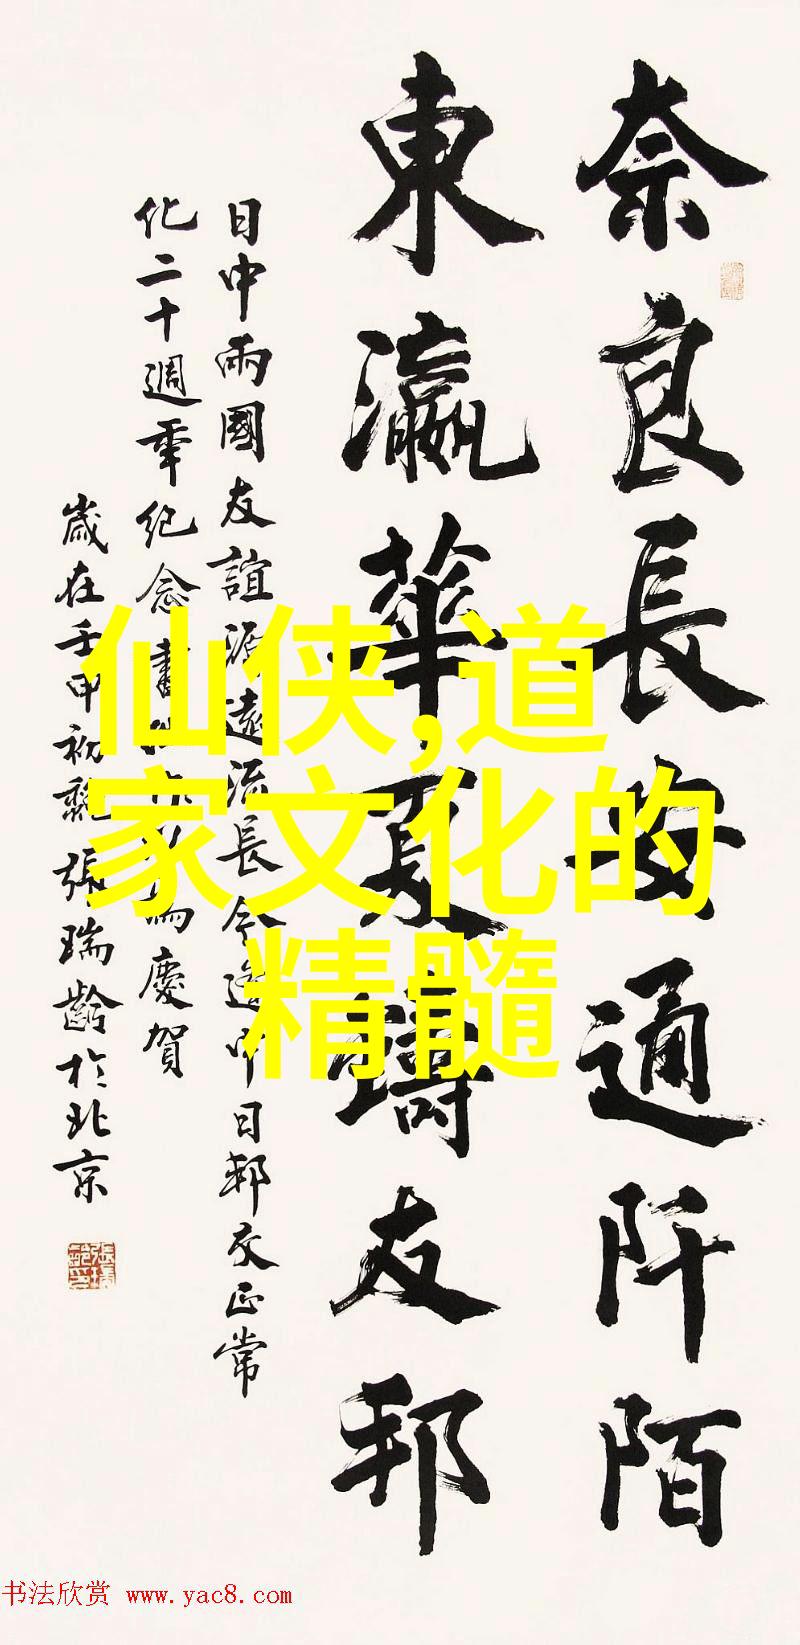 奈良長安通阡陌
東瀛華夏鑄友邦
日中兩國友誼源遠流長今逢中日邦交正常
化二十週年紀念書以為慶賀
歲在壬申初龝張瑞齡於北京
仙侠,道
家文化的
精髓
书法欣赏 www.yac8.com